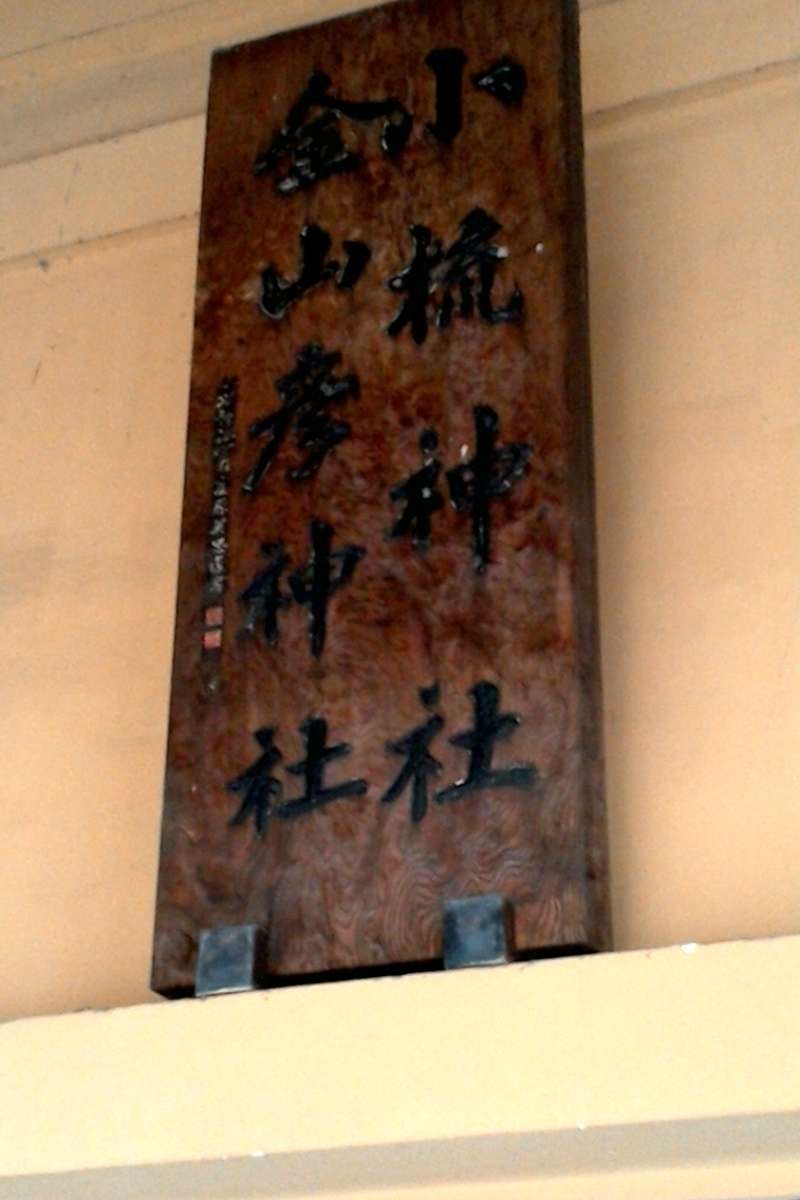 小梳神社
金山彦神社